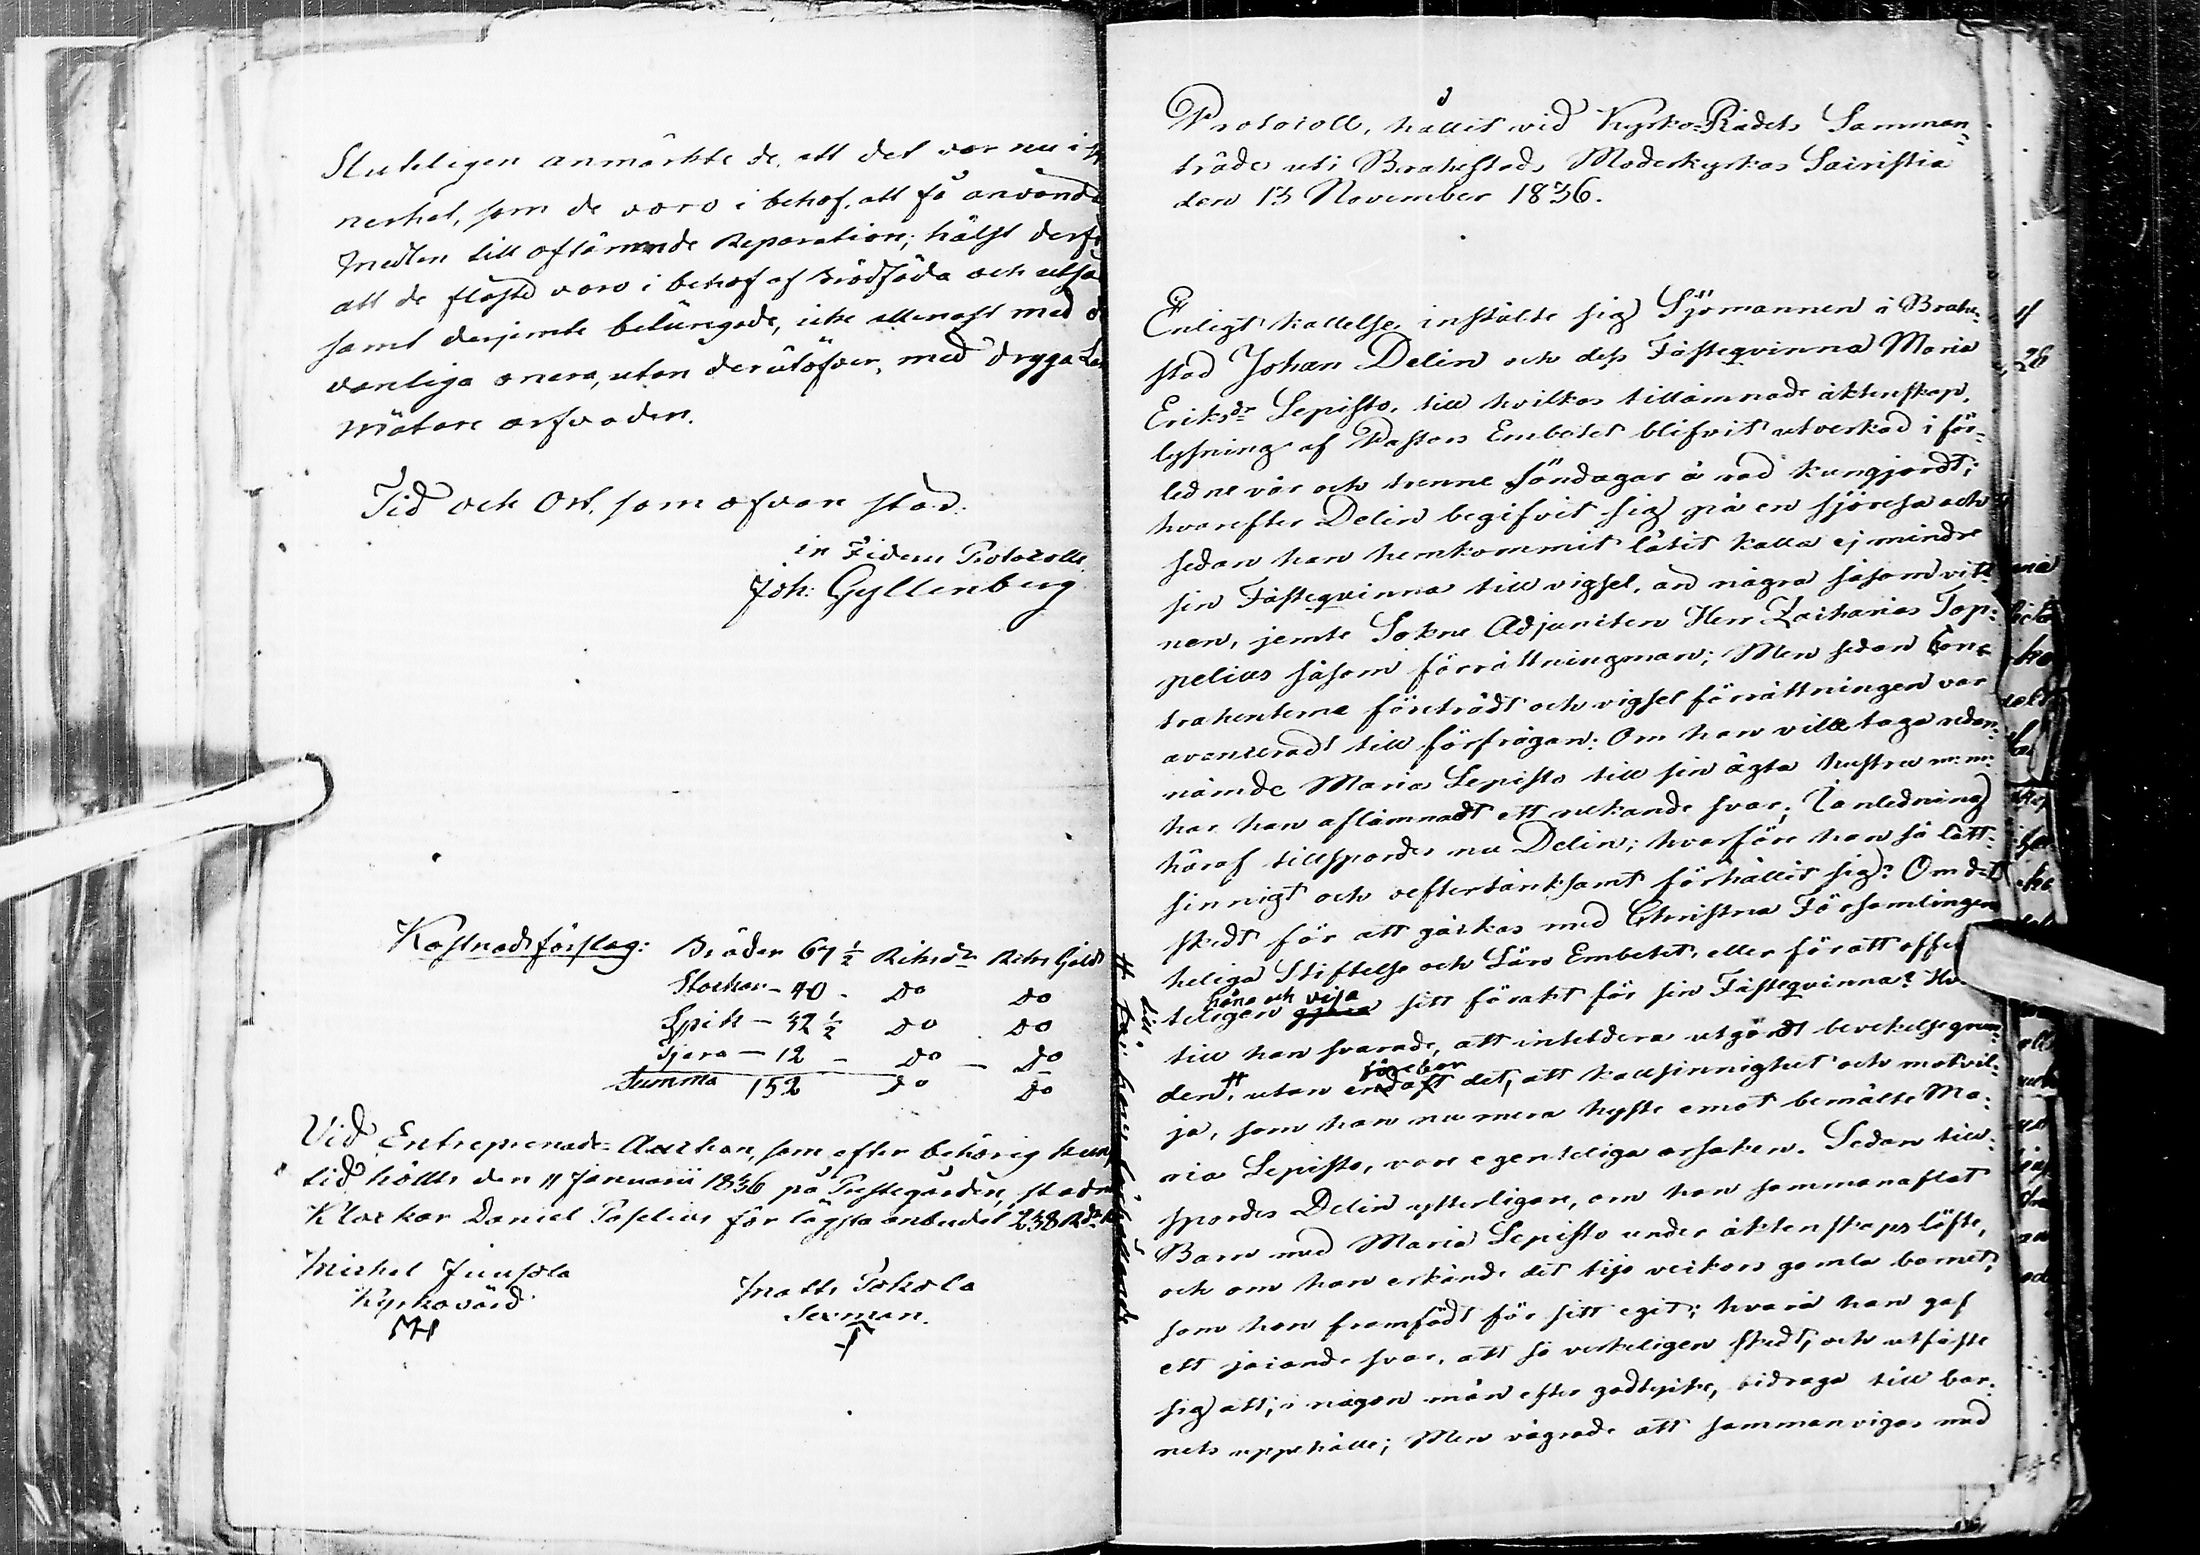 Slutteligen anmärkte de, att det var nu i
nerhet, som de voro i behof, att få använda
Medlen till oftanämnde Reparation; hälst derföre
att de fläste voro i behof af Brödföda och utsäde
samt derjemte betungade, icke allenast med de
vanliga onera, utan derutöfver, med dryga
mätare arfvoden.
Tid och Ort, som ofvan står.
in Fidem Protocolli
Joh: Gyllenberg
Kostnads förslag: Bräder 67 1/2 Riksdr Riks Gälds
Stockar - 40 - Do Do
Spik - 32 1/2 Do Do
Tjära - 12 - Do - Do
Summa 152 Do Do
Vid Entreprenade-Auction, som efter behörig
tid hölts den 11 Januarii 1836 på Prestegården, stadna
Klockar Daniel Paselius för lägsta anbudet 238 Rdr
Michel Juusola
Kyrkovärd
Matts Tokola
Sexman.
Protocoll, hållit vid Kyrko-Rådets Samman-
träde uti Brahestads Moderkyrkas Sacristia
den 13 November 1836.
Enligt kallelse instälte sig Sjömannen i Brahe-
stad Johan Delin och dess Fästeqvinna Maria
Eriksdr Lepisto, till hvilkas tillämnade äktenskap,
lysning af Pastors Embetet blifvit utverkad i för-
ledne vår och trenne Söndagar å rad kungjordt;
hvarefter Delin begifvit sig på en sjöresa och
sedan han hemkommit låtit kalla ej mindre
sin Fästeqvinna till vigsel, än några såsom vitt-
nen, jemte Sokne Adjuncten Herr Zacharias Top-
pelius såsom förrättningman; Men sedan Con-
trahenterne företrädt och vigsel förrättningen var
avancerad till förfrågan: Om han ville taga redan-
nämde Maria Lepisto till sin ägta hustru m: m:
har han aflämnadt ett nekande svar; I anledning
häraf tillspordes nu Delin; hvarföre han så lätt-
sinnigt och oeftertänksamt förhållit sig? Om det
skedt för att gäckas med Christna Församlingens
heliga Stiftelse och Läro Embetet, eller för att offen-
teligen håna och visa sitt förakt för sin Fästeqvinna?
till han svarade, att intetdera utgördt bevekelsegrun-
den, # utan förebar det, att kallsinnighet och motvil-
ja, som han numera hyste emot bemälte Ma-
ria Lepisto, vore egenteliga orsaken. Sedan till-
spordes Delin ytterligare, om han sammanaflat
Barn med Maria Lepisto under äktenskaps löfte,
och om han erkände det tijo veckors gamla barnet,
som hon framfödt för sitt eget; hvarå han gaf
ett jaiande svar, att så verkeligen skedt, och utfäste
sig att, i någon mån efter godtycke, bidraga till bar-
nets uppehälle; Men vägrade att sammanvigas med